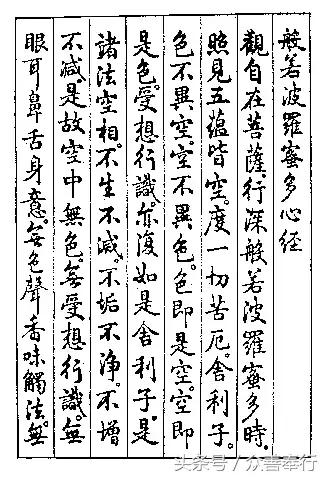 般若波羅蜜多心經
觀自在菩薩。行深般若波羅蜜多時。
照見五蘊皆空。度一切苦厄。舍利子。
色不異空。空不異色。色即是空。空即
是色。受想行識。亦復如是。舍利子。是
諸法空相。不生不滅。不垢不淨。不增
不減。是故空中無色。無受想行識。無
眼耳鼻舌身意。無色聲香味觸法。無
头条号 / 众善奉行